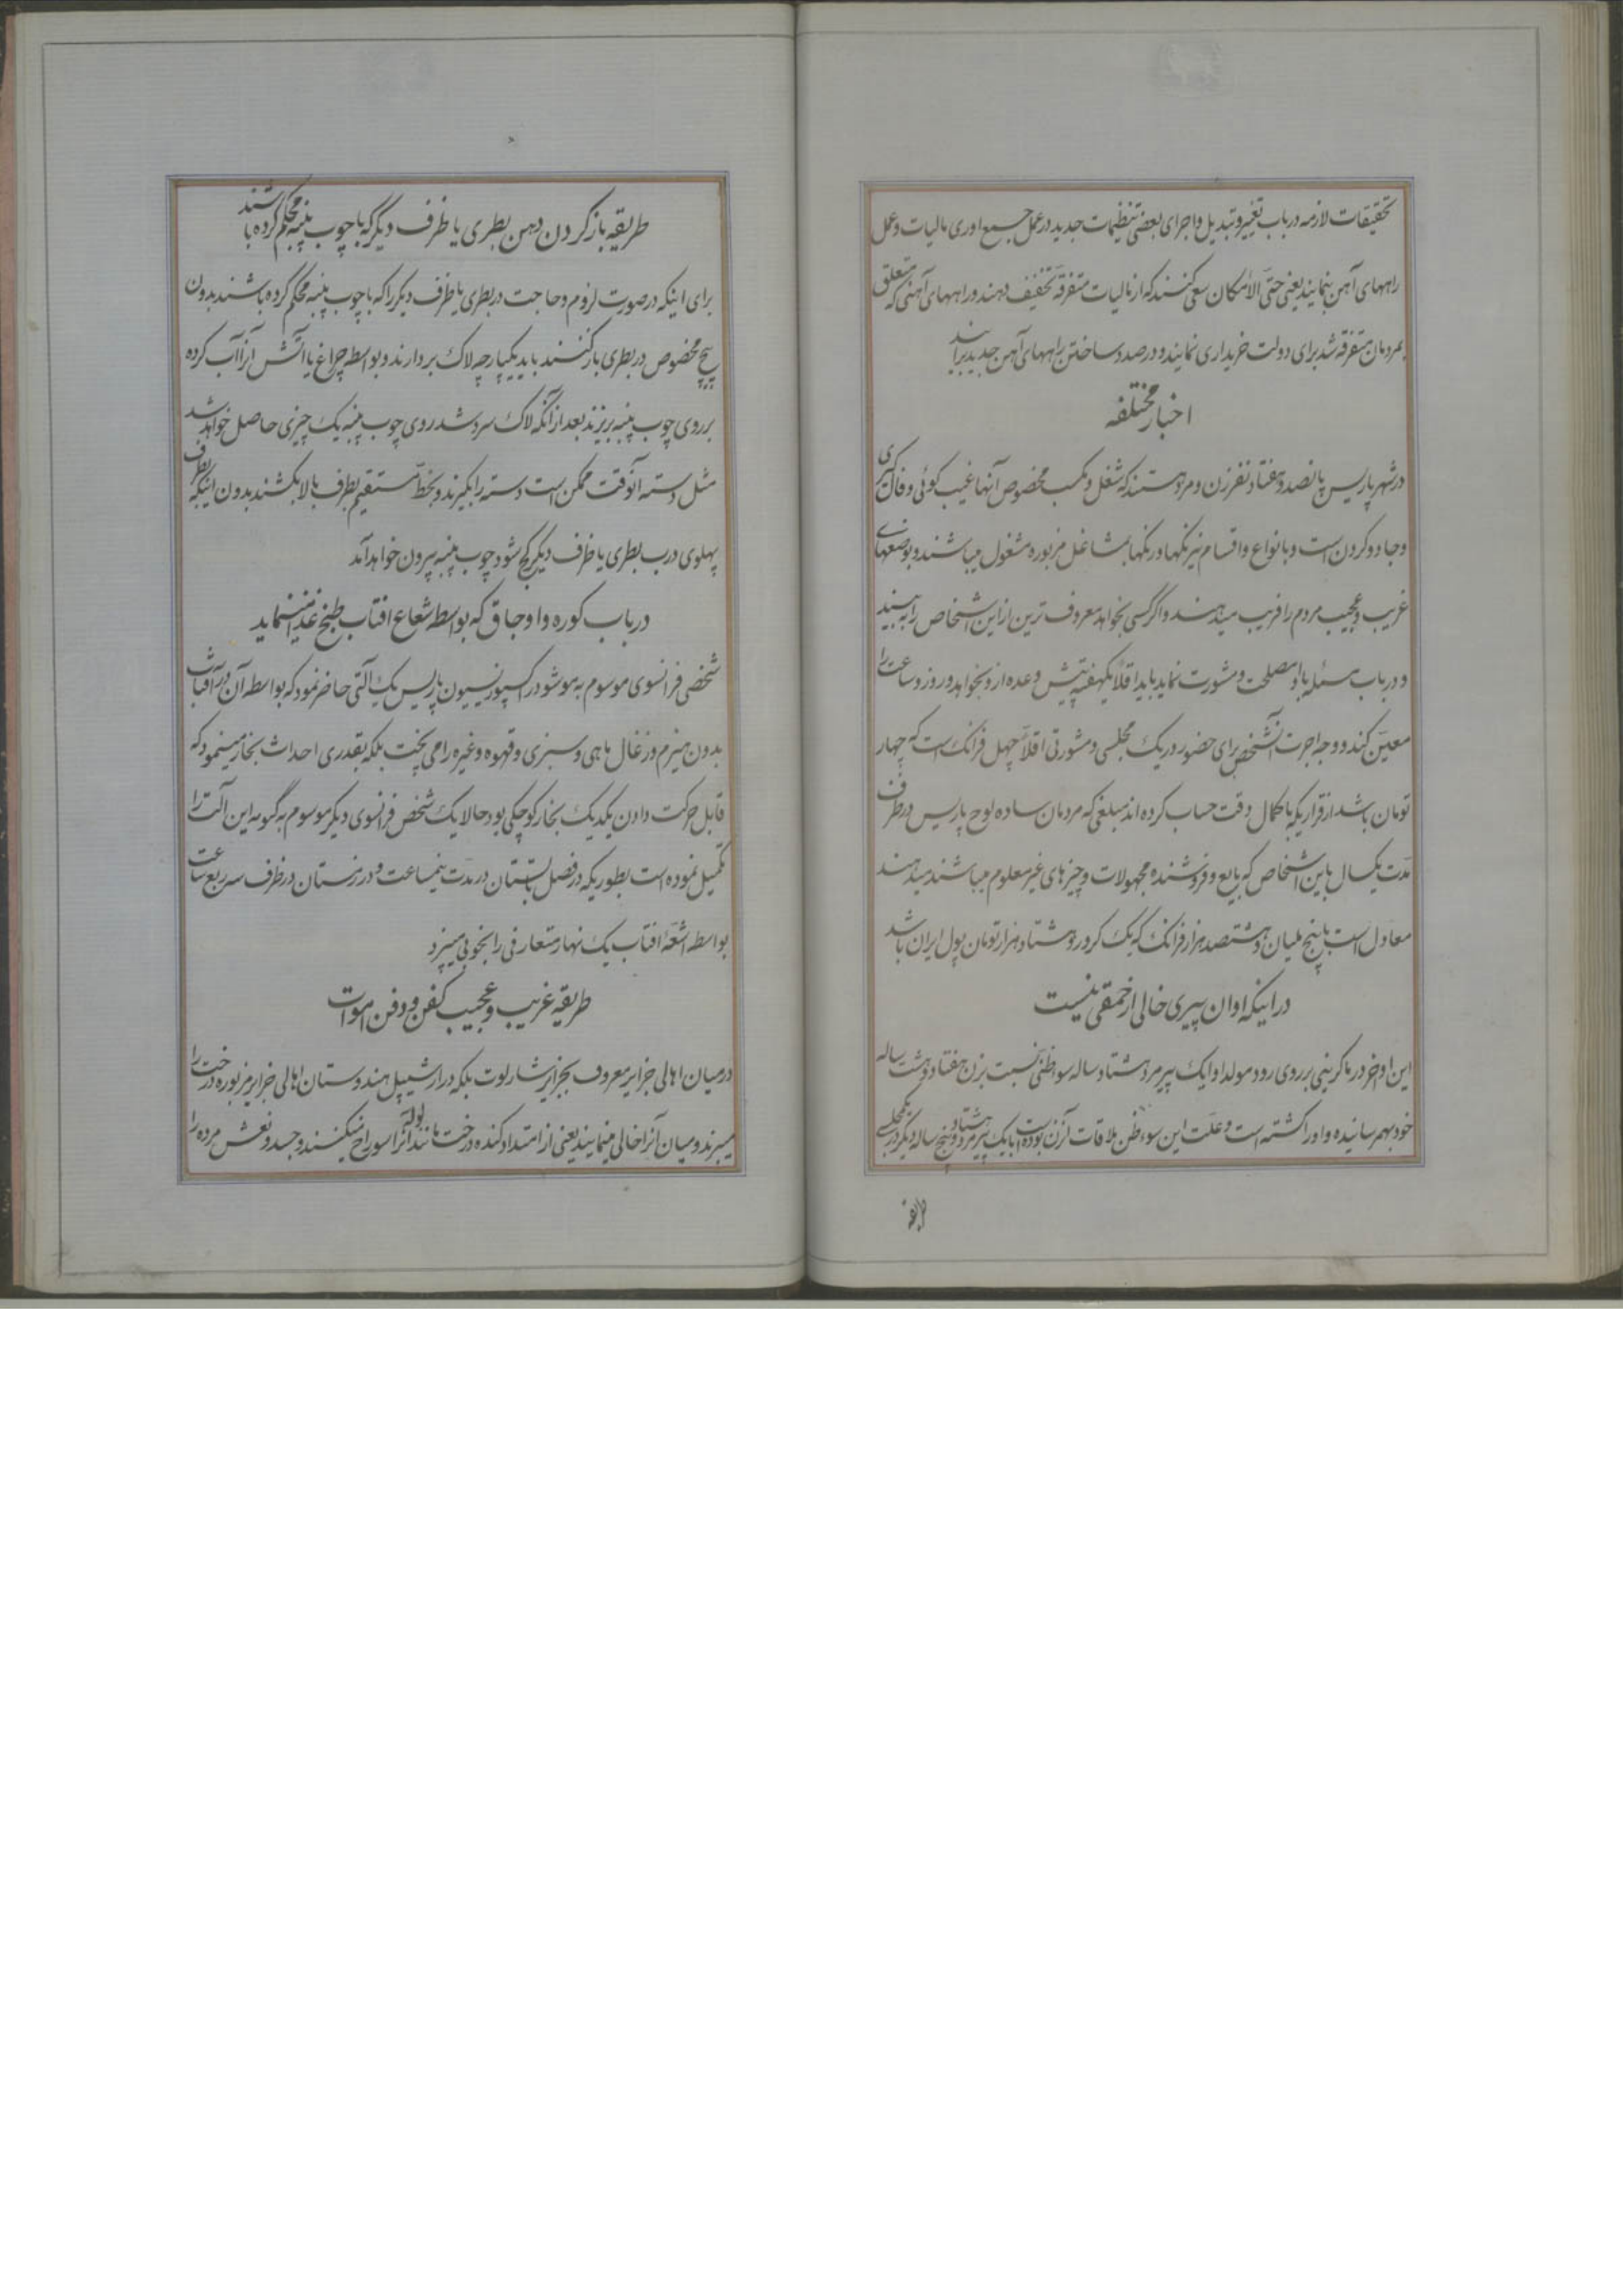 تحقیقات لازمه در باب تغییر و تبدیل و اجرای بعضی تنظیمات جدید در عمل جمع اوری مالیات و عمل
راههای آهن بنمایند یعنی حتی الامکان سعی کنند که از مالیات متفرقه تخفیف دهند و راههای آهنی که متعلق
بمردمان متفرقه شد برای دولت خریداری نمایند و در صدد ساختن راههای آهن جدید برایند
اخبار مختلفه
در شهر پاریس پانصد و هفتاد نفر زن و مرد هستند که شغل و مکسب مخصوص آنها غیب گوئی و فال گیری
و جادو کردن است و با نواع و اقسام نیرنگها و رنگها بمشاغل مزبوره مشغول میباشند و بوضعهای
غریب و عجیب مردم را فریب میدهند و اگر کسی بخواهد معروف ترین از این اشخاص را به بیند
و در باب مسئله با او مصلحت و مشورت نماید باید اقلاً یکهفته پیش وعده از و بخواهد و روز و ساعت را
معین کند و وجه اجرت آنشخص برای حضور در یک مجلسی و مشورتی اقلاً چهل فرانک است که چهار
تومان باشد از قراریکه با کمال دقت حساب کرده اند مبلغی که مردمان ساده لوح پاریس در ظرف
مدت یکسال باین اشخاص که بایع و فروشنده مجهولات و چیزهای غیر معلوم میباشند میدهند
معادل است با پنج ملیان و هشتصد هزار فرانک که یک کرور و هشتاد هزار تومان پول ایران باشد
در اینکه اوان پیری خالی از حمقی نیست
این اواخر در ماکرینی بر روی رود مولداو ایک پیر مرد هشتاد ساله سوء ظنی نسبت بزن هفتاد و هشت ساله
خود بهم رسانیده و او را کشته است و علت این سوء ظن ملاقات آنزن بوده است با یک پیر مرد هشتاد و پنج ساله دیگر در یکمجلسی
طریقه
طریقه باز کردن دهن بطری یا ظرف دیگر که با چوب پنبه محکم کرده باشند
برای اینکه در صورت لزوم و حاجت در بطری یا ظرف دیگر را که با چوب پنبه محکم کرده باشند بدون
پیچ مخصوص در بطری باز کنند باید یکپارچه لاک بردارند و بواسطه چراغ یا آتش آنرا آب کرده
بر روی چوب پنبه بریزند بعد از آنکه لاک سرد شد روی چوب پنبه یک چیزی حاصل خواهد شد
مثل دسته آنوقت ممکن است دسته را بگیرند و بخط مستقیم بطرف بالا بکشند بدون اینکه بطرف
پهلوی درب بطری یا ظرف دیگر کج شود چوب پنبه بیرون خواهد آمد
در باب کوره و اوجاق که بواسطه شعاع افتاب طبخ غذا مینماید
شخصی فرانسوی موسوم به موشو در اکسپوزیسیون پاریس یک آلتی حاضر نمود که بواسطه آن در آفتاب
بدون هیزم و زغال ماهی و سبزی و قهوه و غیره را می پخت بلکه بقدری احداث بخار مینمود که
قابل حرکت دادن یکدیگ بخار کوچکی بود حالا یک شخص فرانسوی دیگر موسوم به گوبه این آلت را
تکمیل نموده است بطوریکه در فصل تابستان در مدت نیمساعت و در زمستان در ظرف سه ربع ساعت
بواسطه اشعه افتاب یک نهار متعارفی را بخوبی میپزد
طریقه غریب و عجیب کفن و دفن اموات
در میان اهالی جزایر معروف بجزایر شارلوت بلکه در ارشیپل هندوستان اهالی جزایر مزبوره درخت را
میبرند و میان آنرا خالی مینمایند یعنی از امتداد کنده درخت مانند لوله آنرا سوراخ میکنند و جسد و نعش مرده را